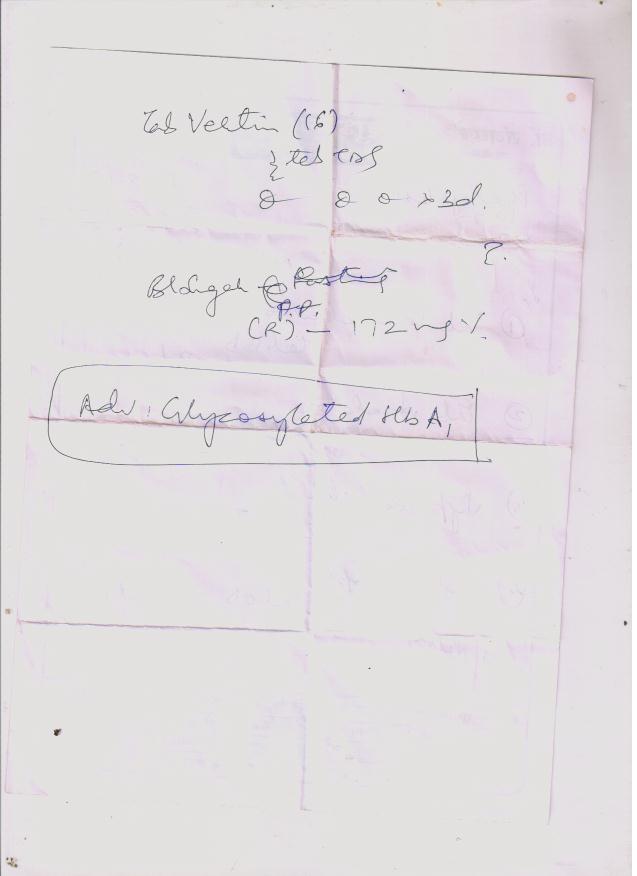 Tab Vertin (16)
} tab TDS
x 3d.
?.
Bl Sugar Fasting
P.P.
(R) - 172 mg %
Adv: Glycosylated Hb A1